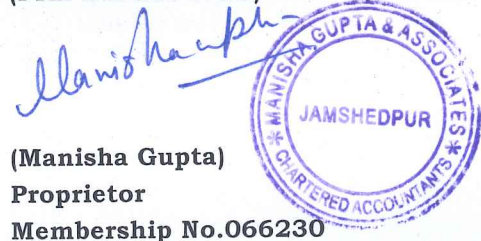 Manisha Gupta
MANISHA GUPTA & ASSOCIATES
JAMSHEDPUR
* CHARTERED ACCOUNTANTS *
(Manisha Gupta)
Proprietor
Membership No.066230